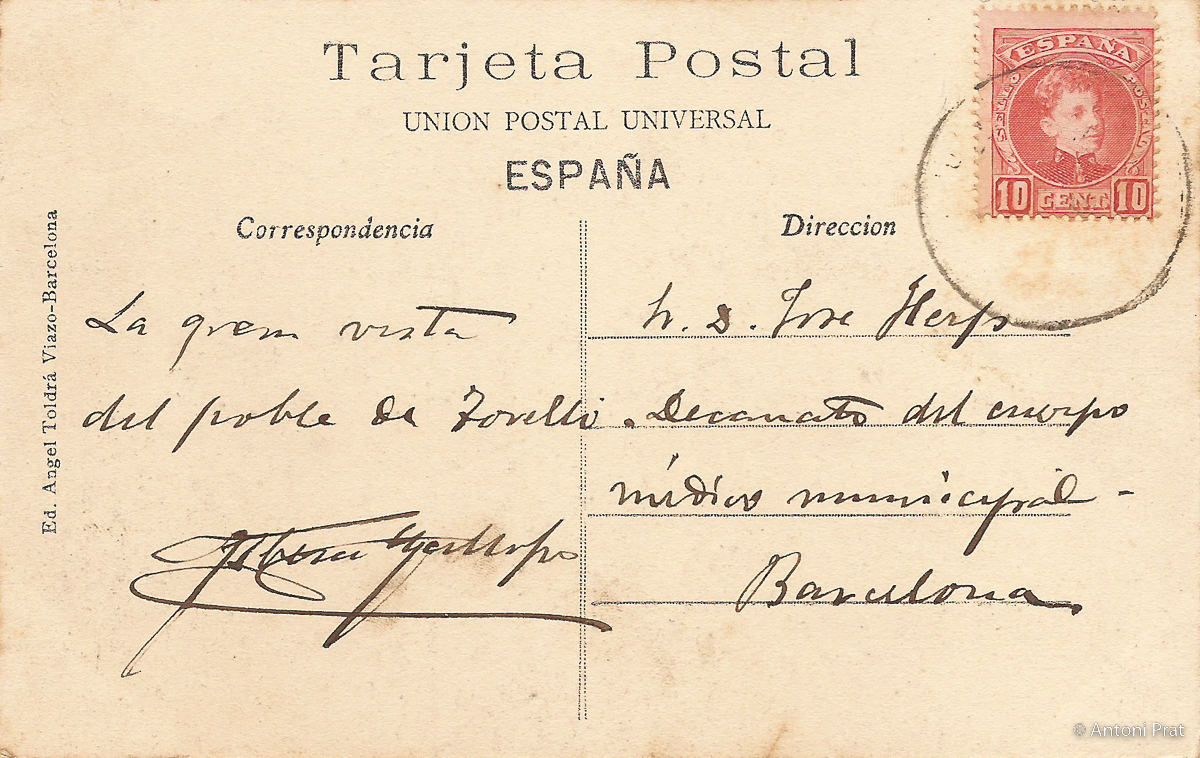 Tarjeta Postal
UNION POSTAL UNIVERSAL
ESPAÑA
ESPAÑA
SELLO POSTAL
10 CENT 10
Correspondencia
Direccion
Ed. Angel Toldrá Viazo-Barcelona
La gran vista
del poble de Torelló.
S. D. Jose
Decanato del cuerpo
médico municipal -
Barcelona
© Antoni Prat